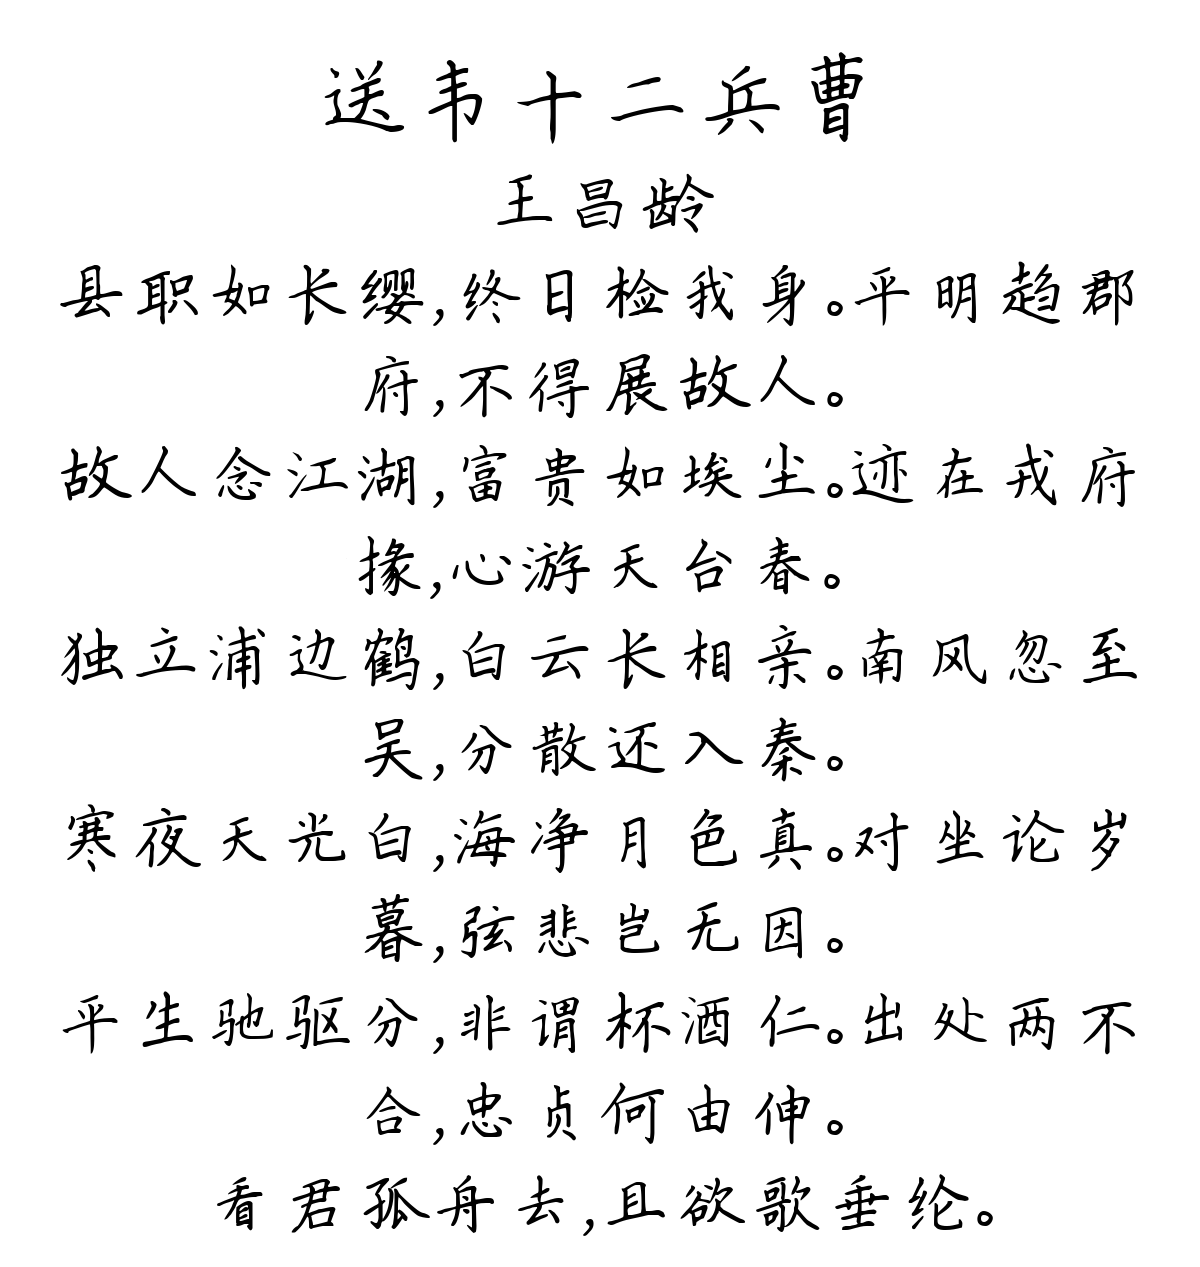 送韦十二兵曹
王昌龄
县职如长缨,终日检我身。平明趋郡
府,不得展故人。
故人念江湖,富贵如埃尘。迹在戎府
掾,心游天台春。
独立浦边鹤,白云长相亲。南风忽至
吴,分散还入秦。
寒夜天光白,海净月色真。对坐论岁
暮,弦悲岂无因。
平生驰驱分,非谓杯酒仁。出处两不
合,忠贞何由伸。
看君孤舟去,且欲歌垂纶。